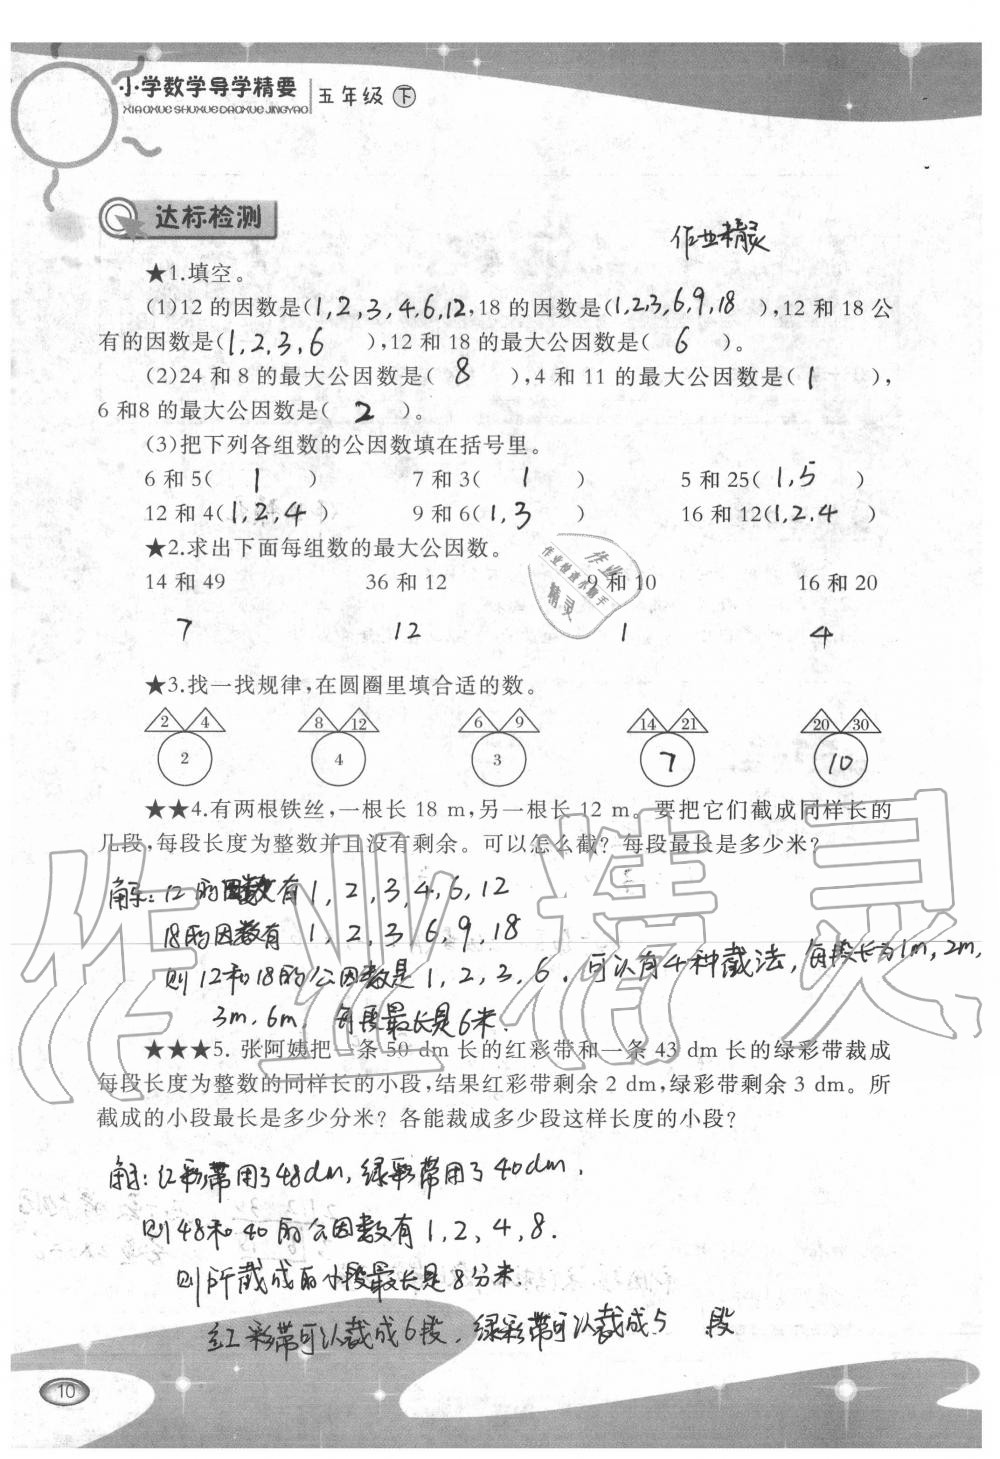 小学数学导学精要
XIAOXUE SHUXUE DAOXUE JINGYAO
五年级 下
达标检测
作业精灵
★1.填空。
(1)12 的因数是(1,2,3,4,6,12,18 的因数是(1,2,3,6,9,18 ),12 和 18 公
有的因数是(1,2,3,6 ),12 和 18 的最大公因数是( 6 )。
(2)24 和 8 的最大公因数是( 8 ),4 和 11 的最大公因数是( 1 ),
6 和8 的最大公因数是( 2 )。
(3)把下列各组数的公因数填在括号里。
6 和 5( 1 ) 7 和 3( 1 ) 5 和 25( 1,5 )
12 和 4(1,2,4 ) 9 和 6(1,3 ) 16 和 12(1,2,4 )
★2.求出下面每组数的最大公因数。
14 和 49 36 和 12 9 和 10 16 和 20
7 12 1 4
作业
作业快速对助手
精灵
★3.找一找规律,在圆圈里填合适的数。
2 4 8 12 6 9 14 21 20 30
2 4 3 7 10
★★4.有两根铁丝,一根长 18 m,另一根长 12 m。要把它们截成同样长的
几段,每段长度为整数并且没有剩余。可以怎么截? 每段最长是多少米?
解:12的因数有1,2,3,4,6,12
18的因数有 1,2,3 6,9,18
则12和18的公因数是1,2,3,6.可以有4种截法,每段长为1m,2m,
3m,6m. 每段最长是6米.
★★★5. 张阿姨把一条 50 dm 长的红彩带和一条 43 dm 长的绿彩带裁成
每段长度为整数的同样长的小段,结果红彩带剩余 2 dm,绿彩带剩余 3 dm。所
截成的小段最长是多少分米? 各能裁成多少段这样长度的小段?
解:红彩带用了48dm,绿彩带用了40dm.
则48和40的公因数有1,2,4,8.
则所截成的小段最长是8分米.
红彩带可以裁成6段.绿彩带可以裁成5 段
作业精灵
10